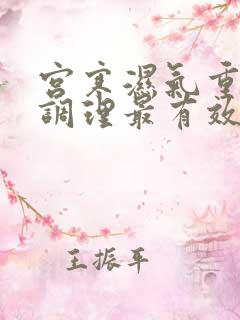 宮寒濕氣重
調理最有效
王振平